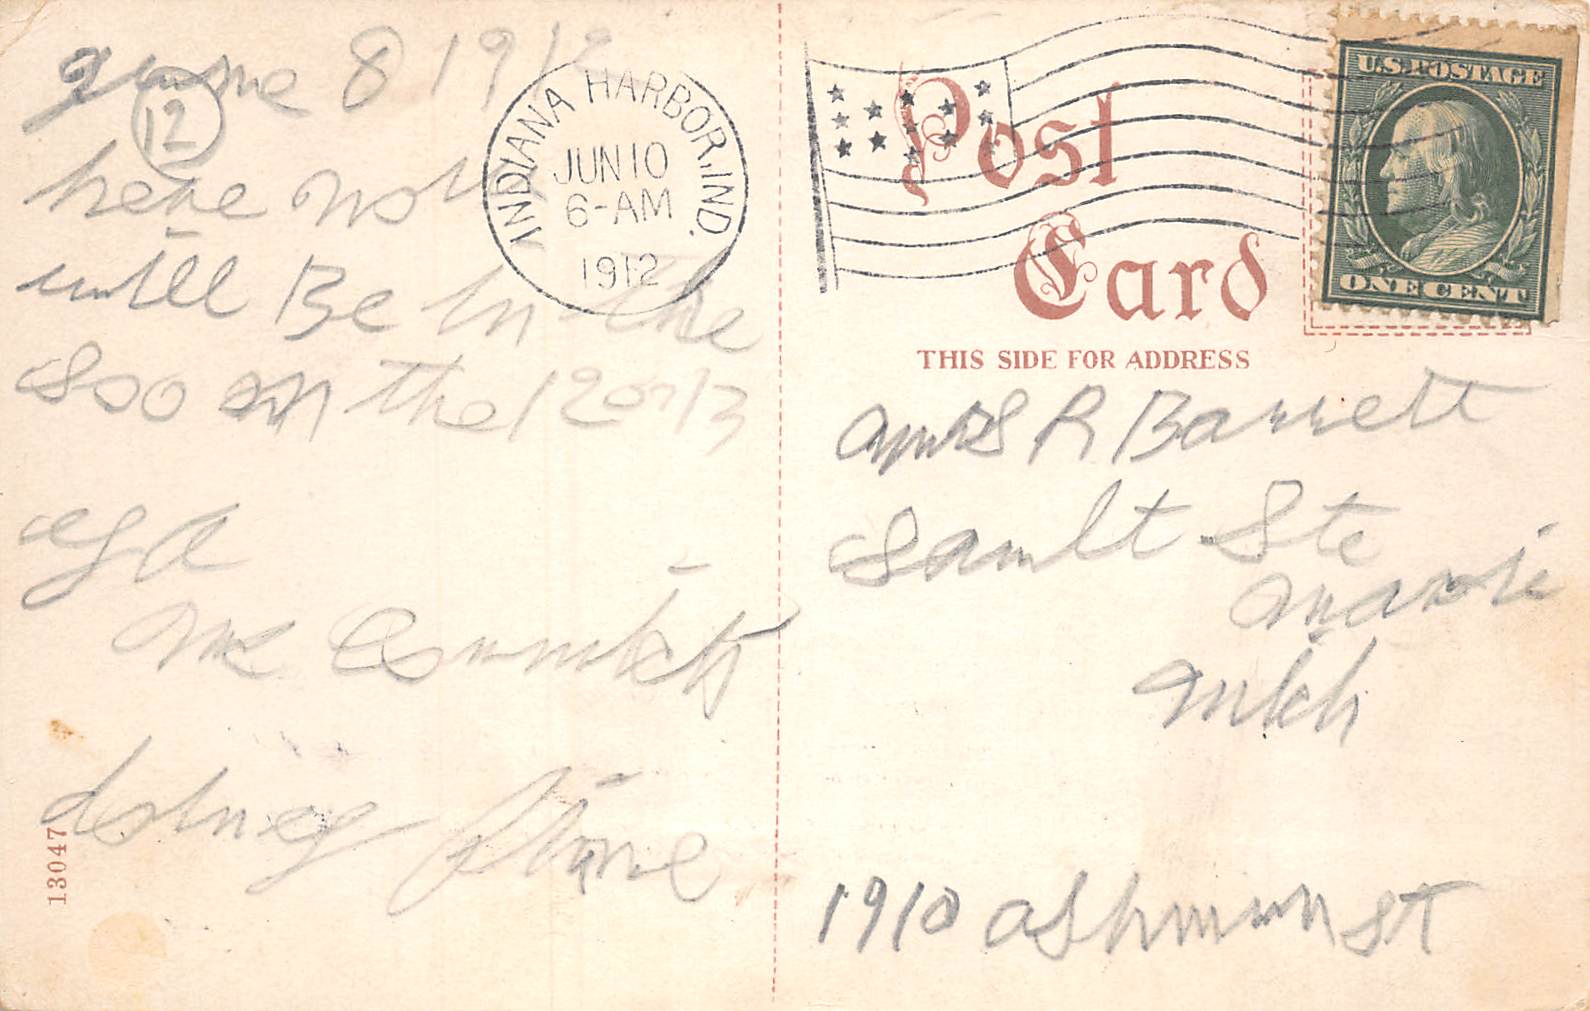 June 8 1912
12
here now
will Be in the
Soo on the 12 or 13
E J A
Mc Cormick
doing fine
13047
INDIANA HARBOR, IND.
JUN 10
6-AM
1912
Post
Card
THIS SIDE FOR ADDRESS
U.S. POSTAGE
ONE CENT
Mrs R Barrett
Sault Ste
Marie
Mich
1910 Ashmun St